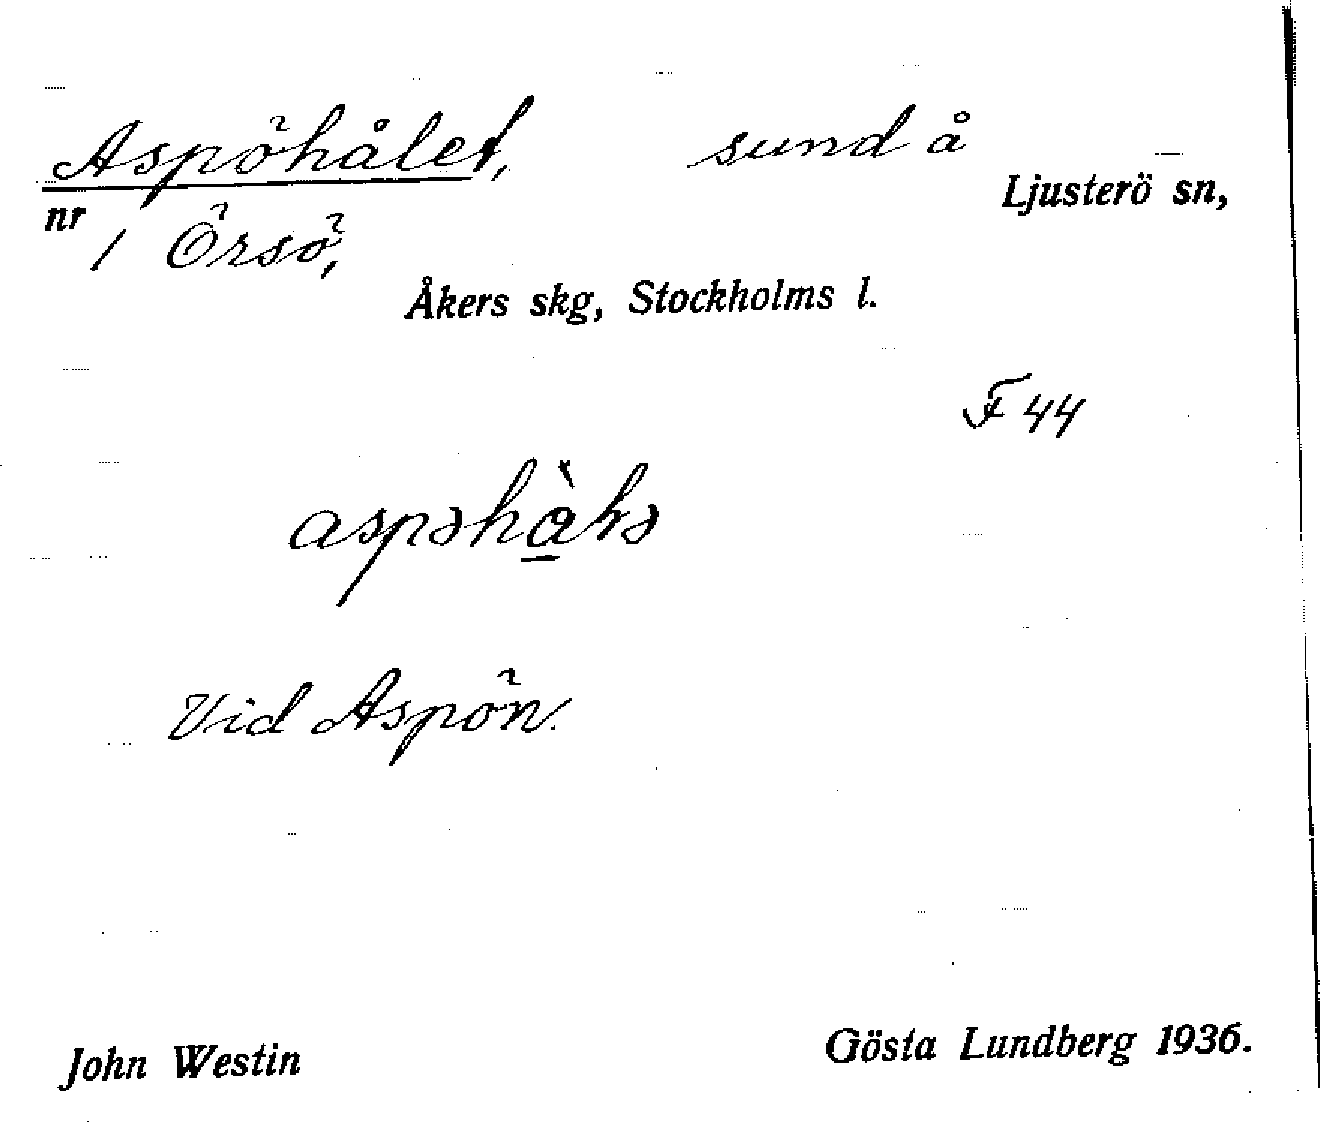 Aspöhålet, sund å
Ljusterö sn,
nr 1 Örsö,
Åkers skg, Stockholms l.
F 44
Vid Aspön.
John Westin
Gösta Lundberg 1936.